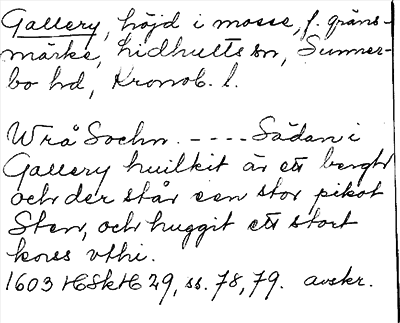 Gallery, höjd i mosse, f. gräns-
märke, Lidhults sn, Sunner-
bo hd, Kronob. l.
Wrå Sochn. - - - - Sådan i
Gallery huilkit är ett bergh
och der står een stor pikot
Sten, och huggit ett stort
korss vthi.
1603 HSkH 29, ss. 78, 79. avskr.